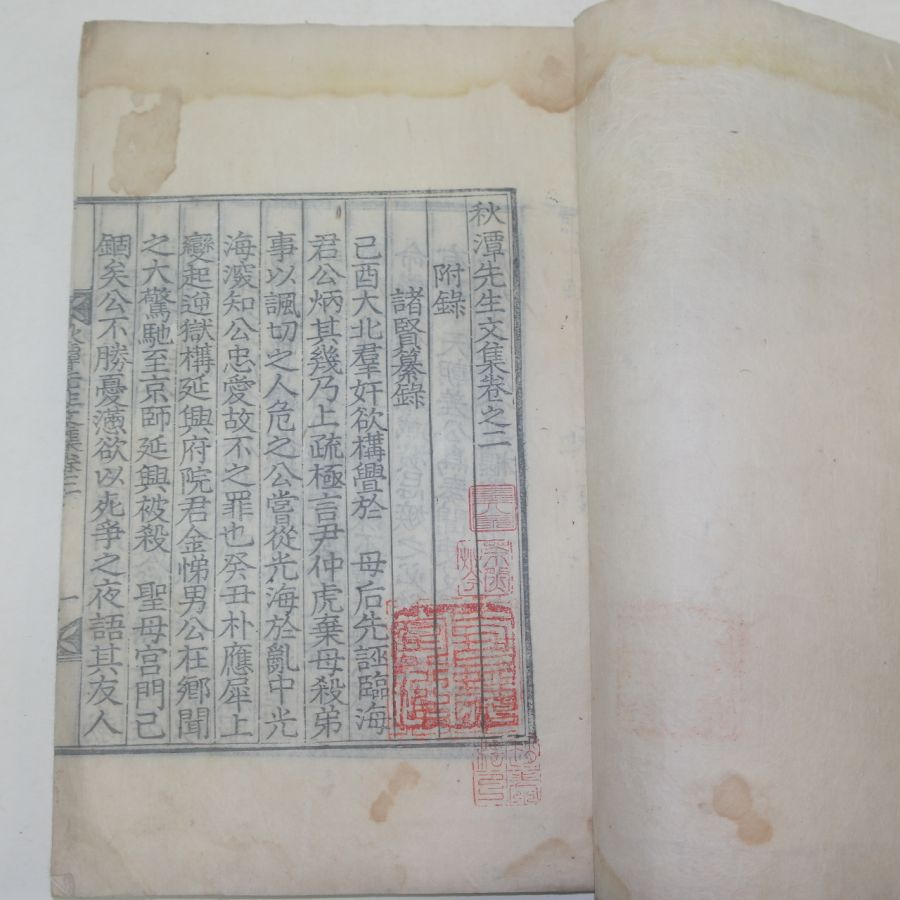 秋潭先生文集卷之二
附錄
諸賢纂錄
己酉大北羣奸欲構釁於 母后先誣臨海
君公炳其幾乃上疏極言尹仲虎棄母殺弟
事以諷切之人危之公嘗從光海於亂中光
海深知公忠愛故不之罪也癸丑朴應犀上
變起逆獄構延興府院君金悌男公在鄉聞
之大驚馳至京師延興被殺 聖母宮門已
錮矣公不勝憂懣欲以死爭之夜語其友人